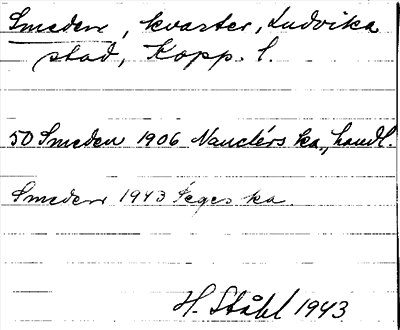 Smeden, kvarter, Ludvika
stad, Kopp. l.
50 Smeden 1906 Nauclérs ka., handl.
Smeden 1943 Feges ka.
H. Ståhl 1943